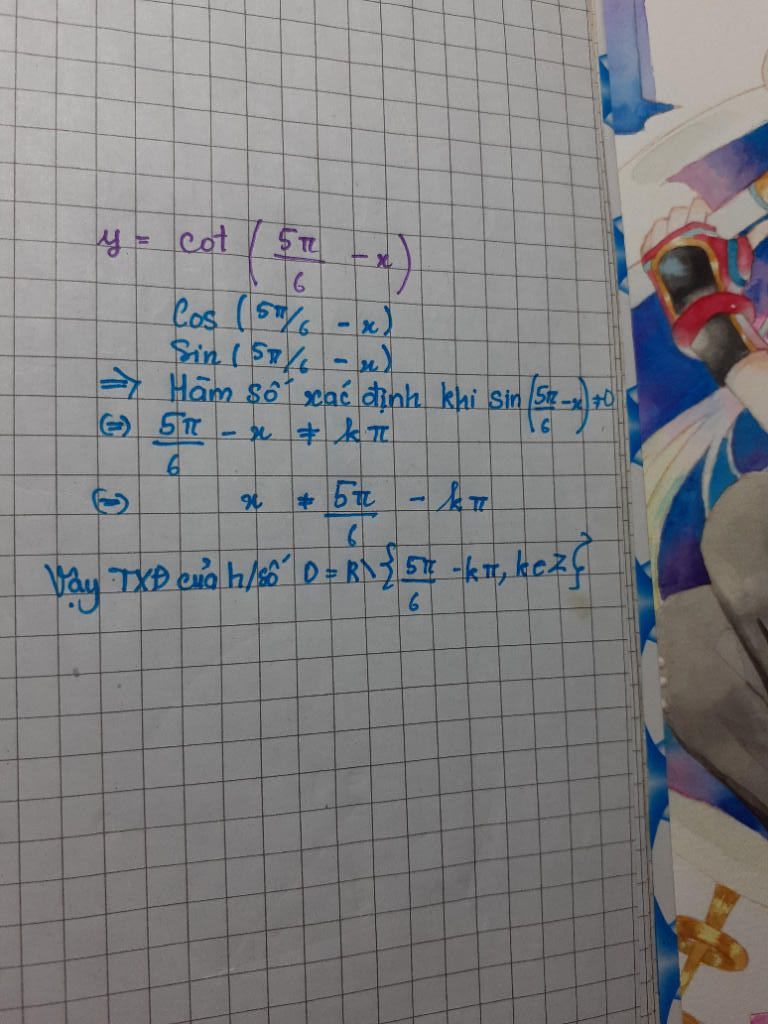 y = cot ( 5π/6 - x )
Cos ( 5π/6 - x )
Sin ( 5π/6 - x )
=> Hàm số xác định khi sin ( 5π/6 - x ) ≠ 0
(=) 5π/6 - x ≠ kπ
(=) x ≠ 5π/6 - kπ
Vậy TXĐ của h/số D = R \ { 5π/6 - kπ, k ∈ Z }